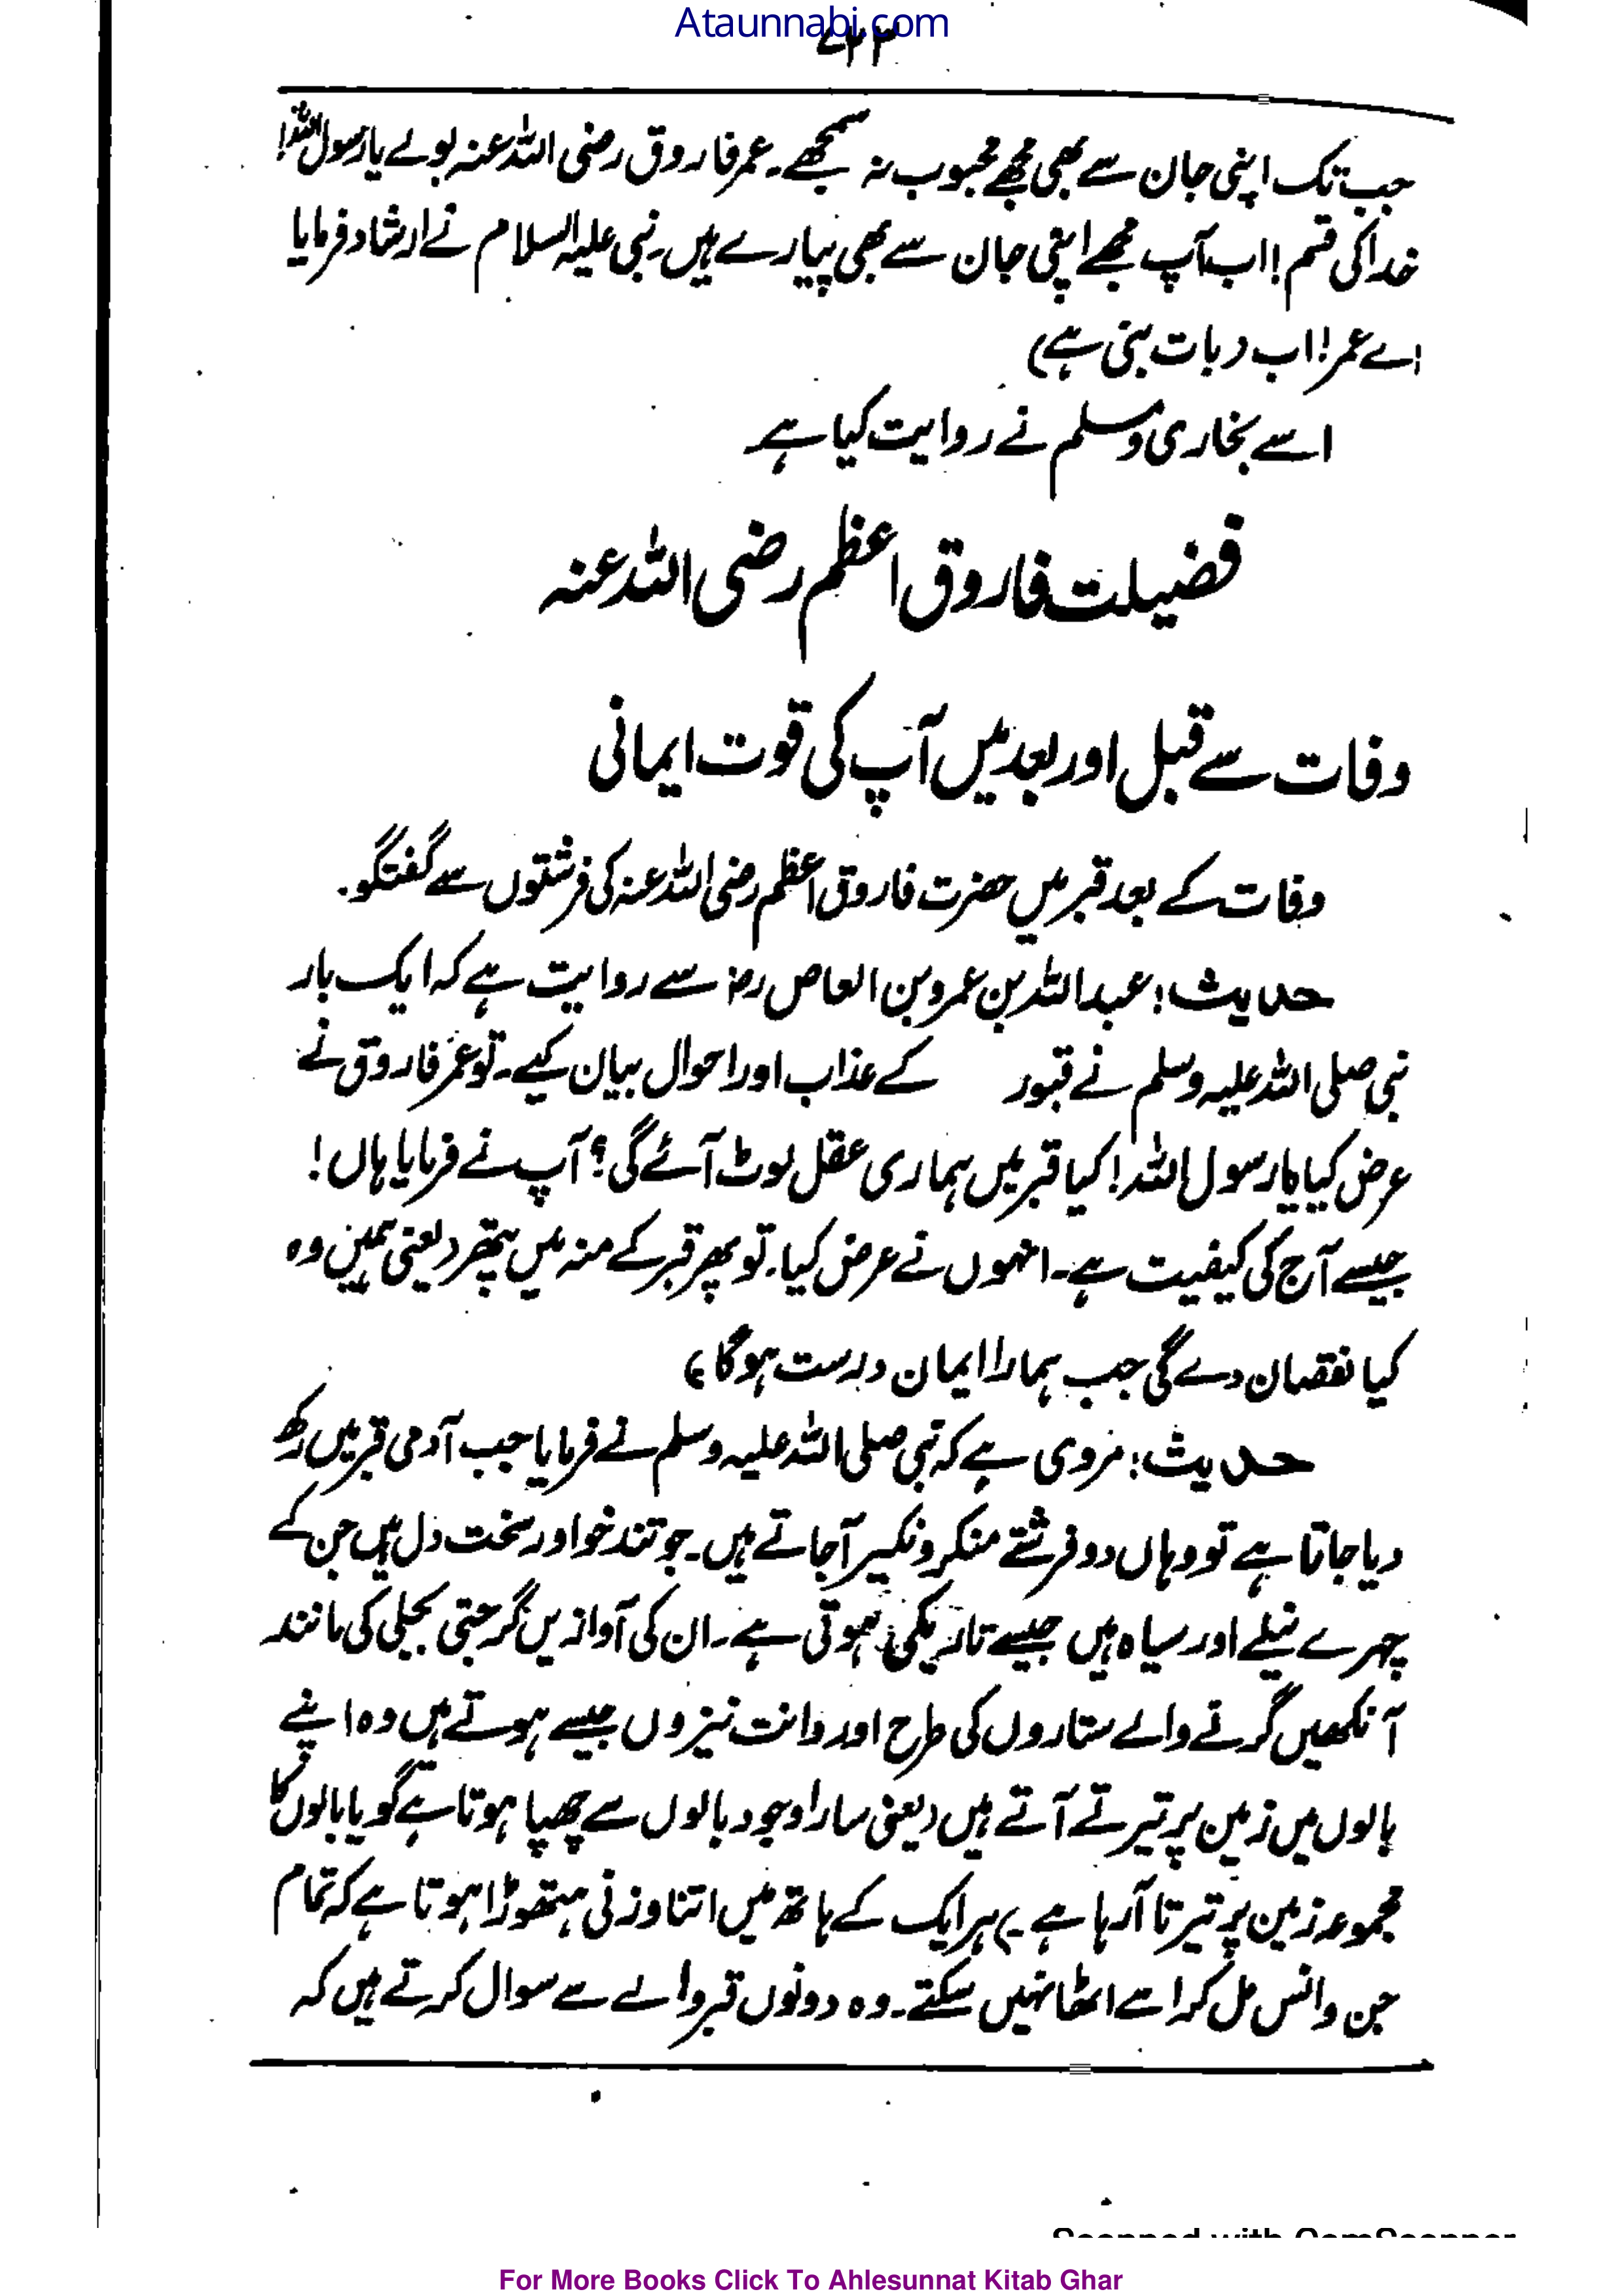 Ataunnabi.com
۷۲۳
جب تک اپنی جان سے بھی مجھے محبوب نہ سمجھے۔ عمر فاروق رضی اللہ عنہ بولے یا رسول اللہ!
خدا کی قسم! اب آپ مجھے اپنی جان سے بھی پیارے ہیں۔ نبی علیہ السلام نے ارشاد فرمایا
اے عمر! اب (بات بنی ہے)
اسے بخاری و مسلم نے روایت کیا ہے
فضیلت فاروق اعظم رضی اللہ عنہ
وفات سے قبل اور بعد میں آپ کی قوت ایمانی
وفات کے بعد قبر میں حضرت فاروق اعظم رضی اللہ عنہ کی فرشتوں سے گفتگو۔
حدیث: عبداللہ بن عمرو بن العاص رضؓ سے روایت ہے کہ ایک بار
نبی صلی اللہ علیہ وسلم نے قبور کے عذاب اور احوال بیان کیے۔ تو عمرؓ فاروق نے
عرض کیا یا رسول اللہ! کیا قبر میں ہماری عقل لوٹ آئے گی؟ آپ نے فرمایا ہاں!
جیسے آج کی کیفیت ہے۔ انہوں نے عرض کیا۔ تو پھر قبر کے منہ میں پتھر (یعنی ہمیں وہ
کیا نقصان دے گی جب ہمارا ایمان درست ہوگا)
حدیث: مروی ہے کہ نبی صلی اللہ علیہ وسلم نے فرمایا جب آدمی قبر میں رکھ
دیا جاتا ہے تو وہاں دو فرشتے منکر و نکیر آجاتے ہیں۔ جو تند خو اور سخت دل ہیں جن کے
چہرے نیلے اور سیاہ ہیں جیسے تاریکی ہوتی ہے۔ ان کی آوازیں گرجتی بجلی کی مانند
آنکھیں گرنے والے ستاروں کی طرح اور دانت نیزوں جیسے ہوتے ہیں وہ اپنے
بالوں میں زمین پر تیرتے آتے ہیں (یعنی سارا وجود بالوں سے چھپا ہوتا ہے گویا بالوں کا
مجموعہ زمین پر تیرتا آرہا ہے) ہر ایک کے ہاتھ میں اتنا وزنی ہتھوڑا ہوتا ہے کہ تمام
جن و انس مل کر اسے اٹھا نہیں سکتے۔ وہ دونوں قبر والے سے سوال کرتے ہیں کہ
Scanned with CamScanner
For More Books Click To Ahlesunnat Kitab Ghar